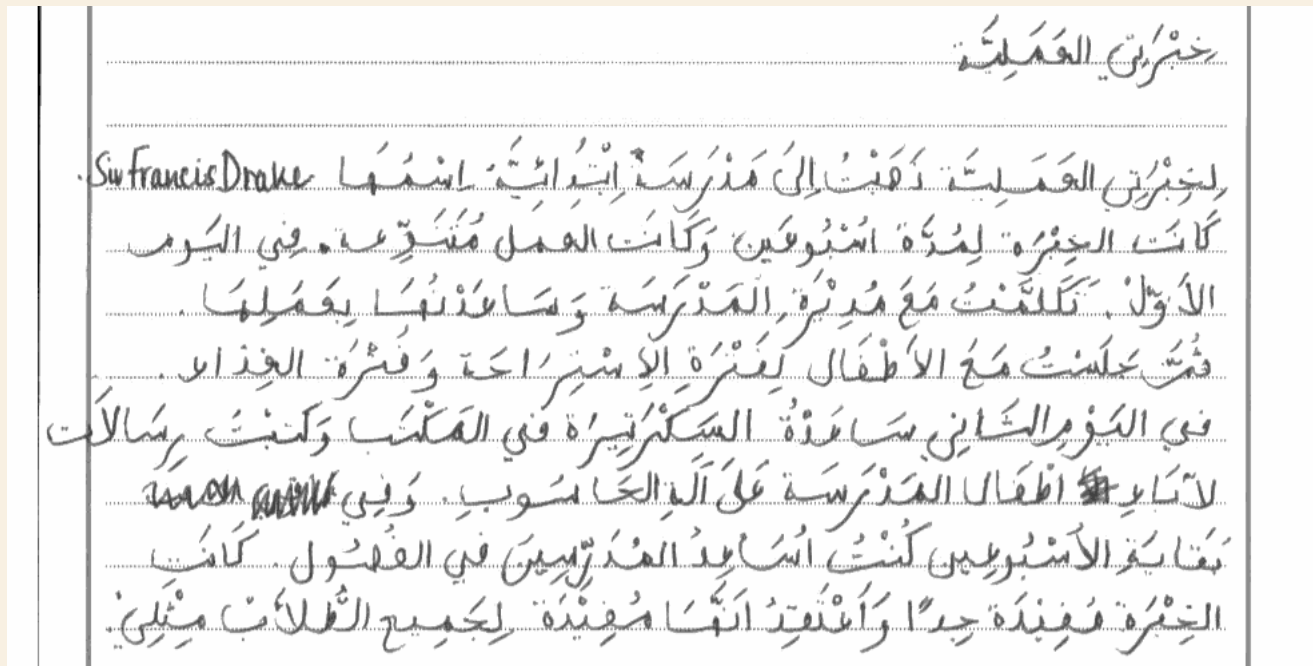 خِبْرَتِي العَمَلِيَّة
لِخِبْرَتِي العَمَلِيَّة ذَهَبْتُ إِلَى مَدْرَسَة اِبْتِدَائِيَّة اِسْمُهَا Sir Francis Drake.
كَانَت الخِبْرَة لِمُدَّة اسْبُوعَين وَكَانَت العَمَل مُتَنَوِّعة. فِي اليَوم
الأَوَّلْ. تَكَلَّمْتُ مَعَ مُدِيْرَة المَدْرَسَة وَسَاعَدْتُهَا بِعَمَلِهَا.
ثُمَّ جَلَسْتُ مَعَ الأَطْفَال لِفَتْرَةِ الاِسْتِرَاحَة وَفَتْرَة الغِذاء.
في اليَوْمِ الثَّانِي سَاعَدْةُ السَكْرَتِيرَة في المَكْتَب وَكَتبْتُ رِسَالاَت
لأبَاءِ اطْفَال المَدْرَسَة عَلَى آلَةِ الحَاسُوبِ. وَفِي
بَقَايَةِ الأسْبُوعين كُنْتُ اُسَاعِدُ المُدَرِّسِينَ في الفُصُول. كَانَتِ
الخِبْرَة مُفِيْدَة جِدًا وَأَعْتَقِدُ انَّهَا مُفِيْدَة لِجَمِيع الطُّلاَبْ مِثْلِيْ.